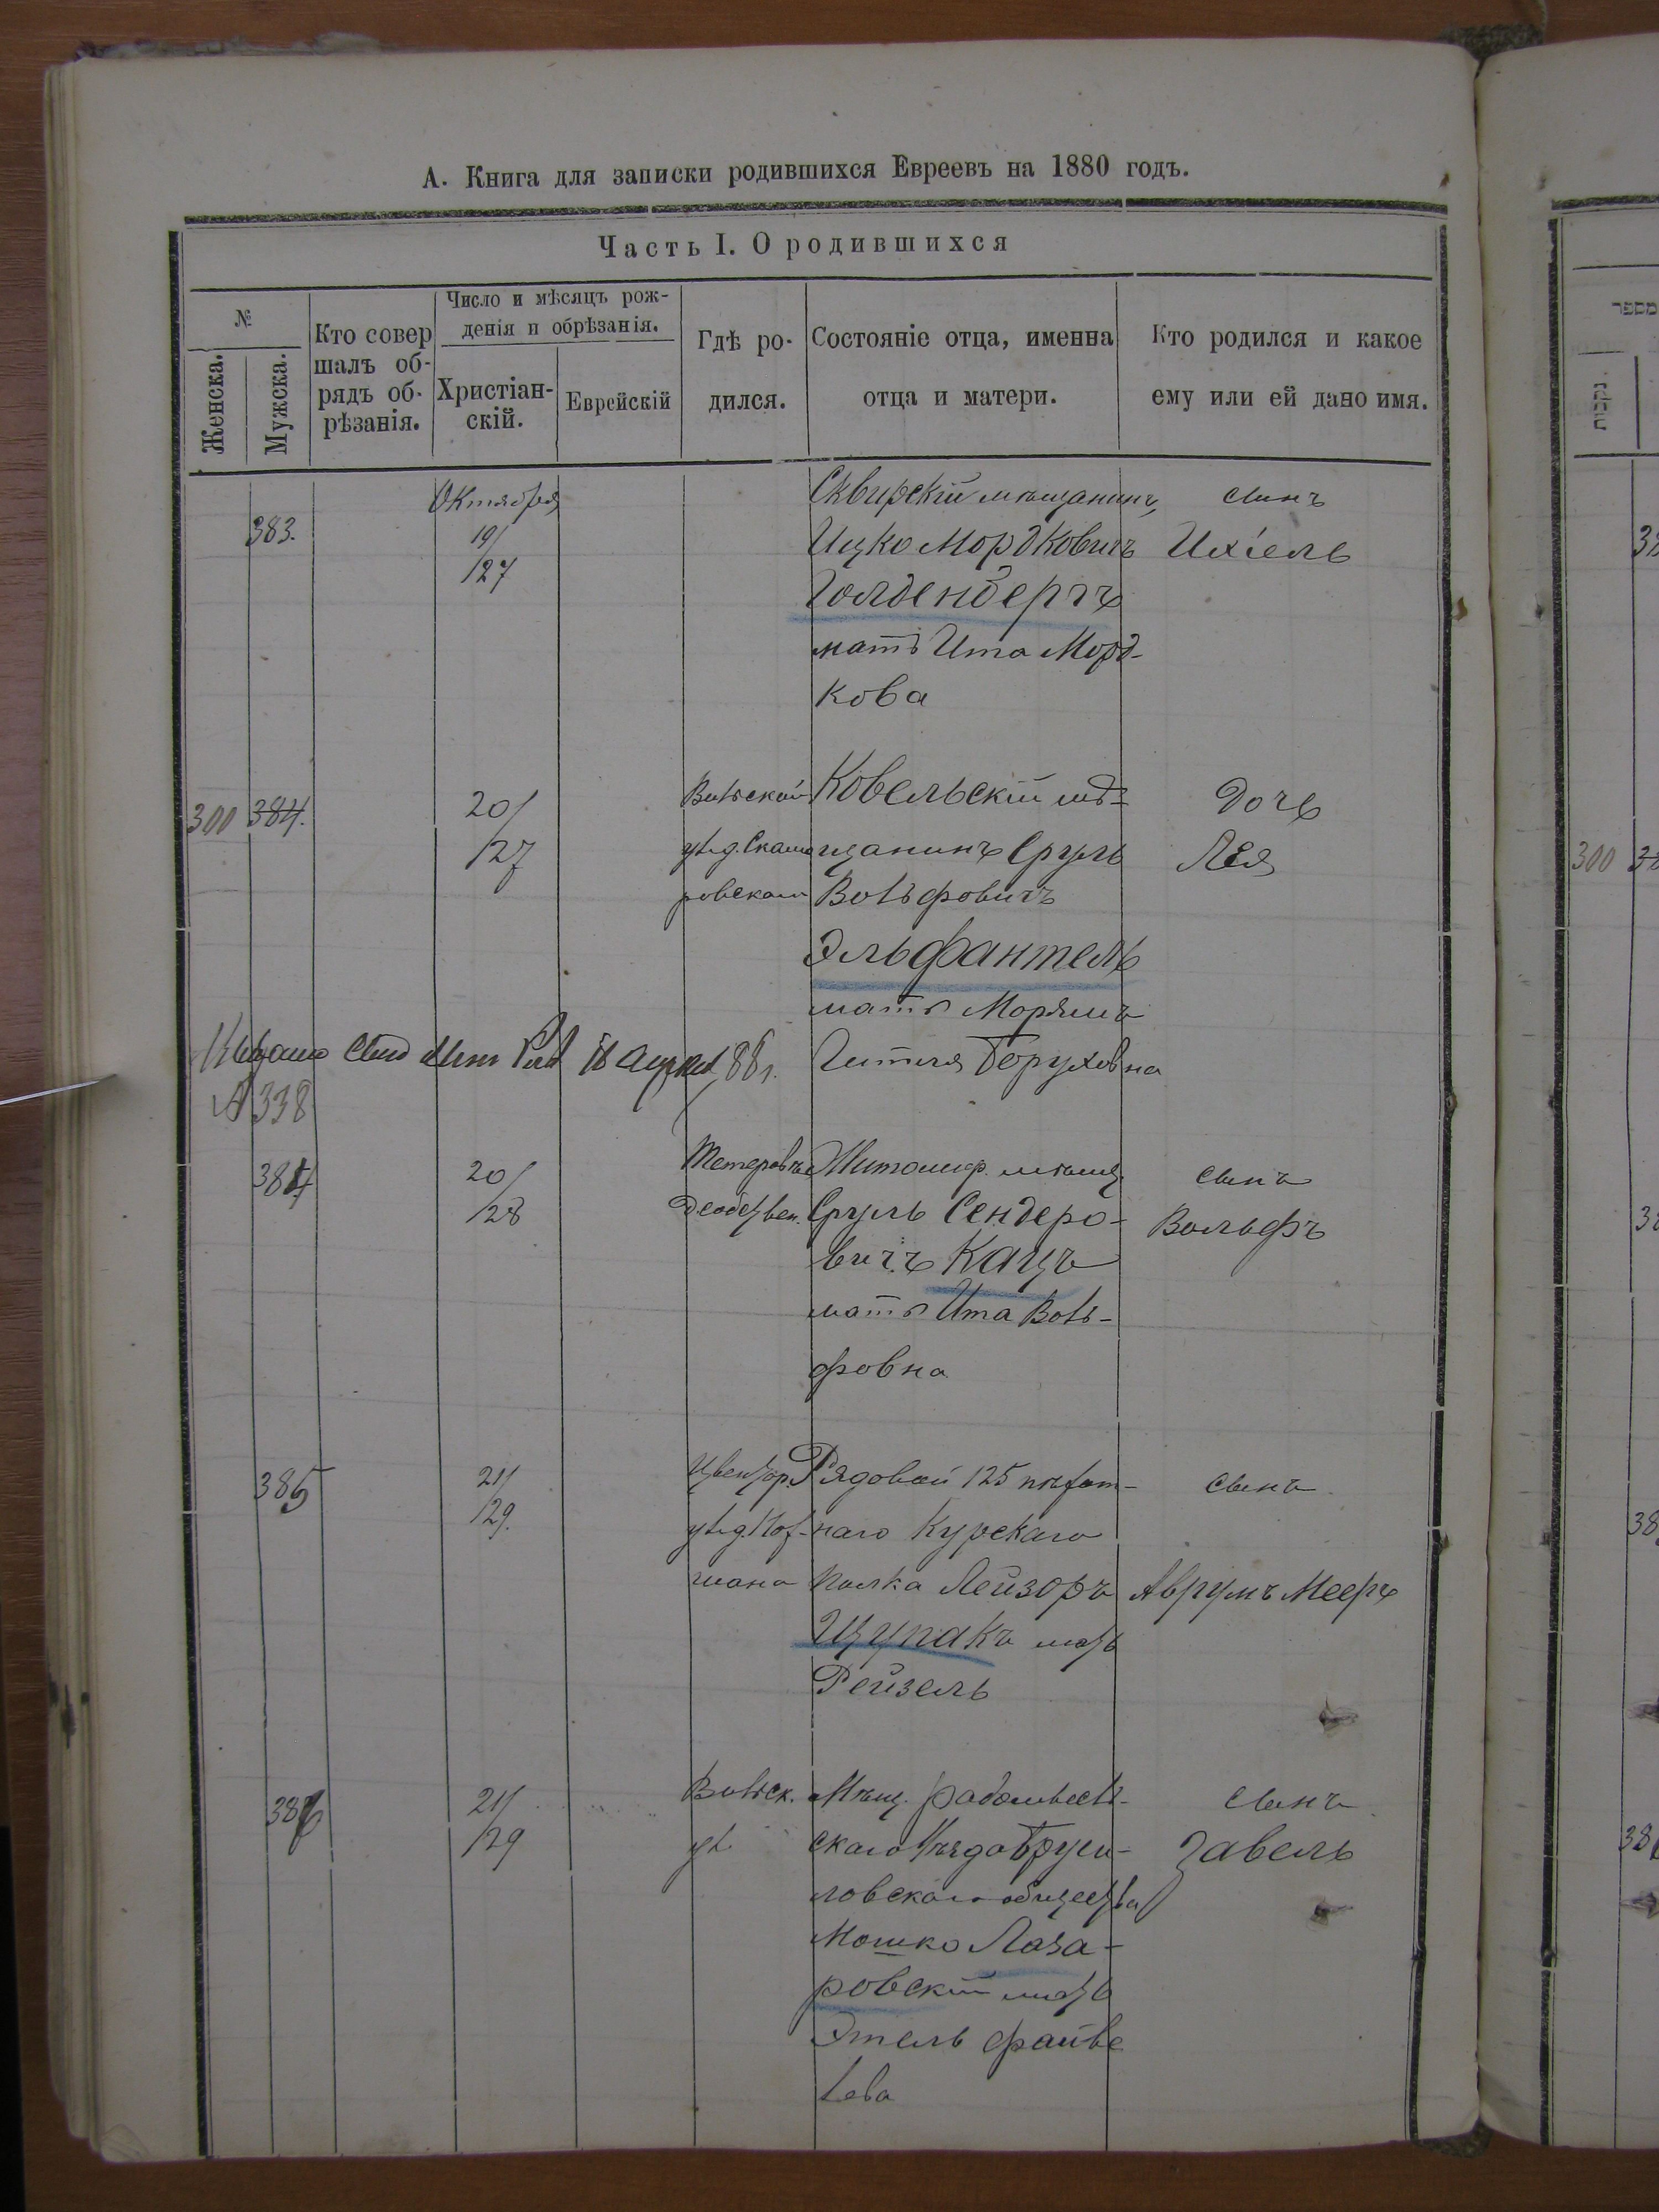 А. Книга для записки родившихся Евреевъ на 1880 годъ.
Часть I. О родившихся
№
Женска.
Мужска.
Кто совер
шалъ об-
рядъ об-
рѣзанія.
Число и мѣсяцъ рож-
денія и обрѣзанія.
Христіан-
скій.
Еврейскій
Гдѣ ро-
дился.
Состояніе отца, именна
отца и матери.
Кто родился и какое
ему или ей дано имя.
383.
Октября
19/
/27
Сквирскій мѣщанинъ,
Ицко Мордковичъ
Голденбергъ
мать Ита Морд-
кова
сынъ
Ихіель
300 384.
20/
/27
Вильской
ул. д.
ровскаго
Ковельскій мѣ-
щанинъ Сруль
Вольфовичъ
Эльфантель
мать Морямъ
Гитля Боруховна
дочь
Лея
338
384
20/
/28
Житомир. мѣщ.
Сруль Сендеро-
вичъ Кацъ
мать Ита Воль-
фовна
сынъ
Вольфъ
385
21/
/29.
ул. д.
Рядовой 125 пѣхот-
наго Курскаго
полка Лейзоръ
Щупакъ мать
Рейзель
сынъ
Аврумъ Мееръ
386
21/
/29
Вильск.
ул
Мѣщ. Радомысль-
скаго уѣзда Бруси-
ловскаго общества
Мошко Лаза-
ровскій мать
Этель Файве
лева
сынъ
Завель
מספר
נקבות
300